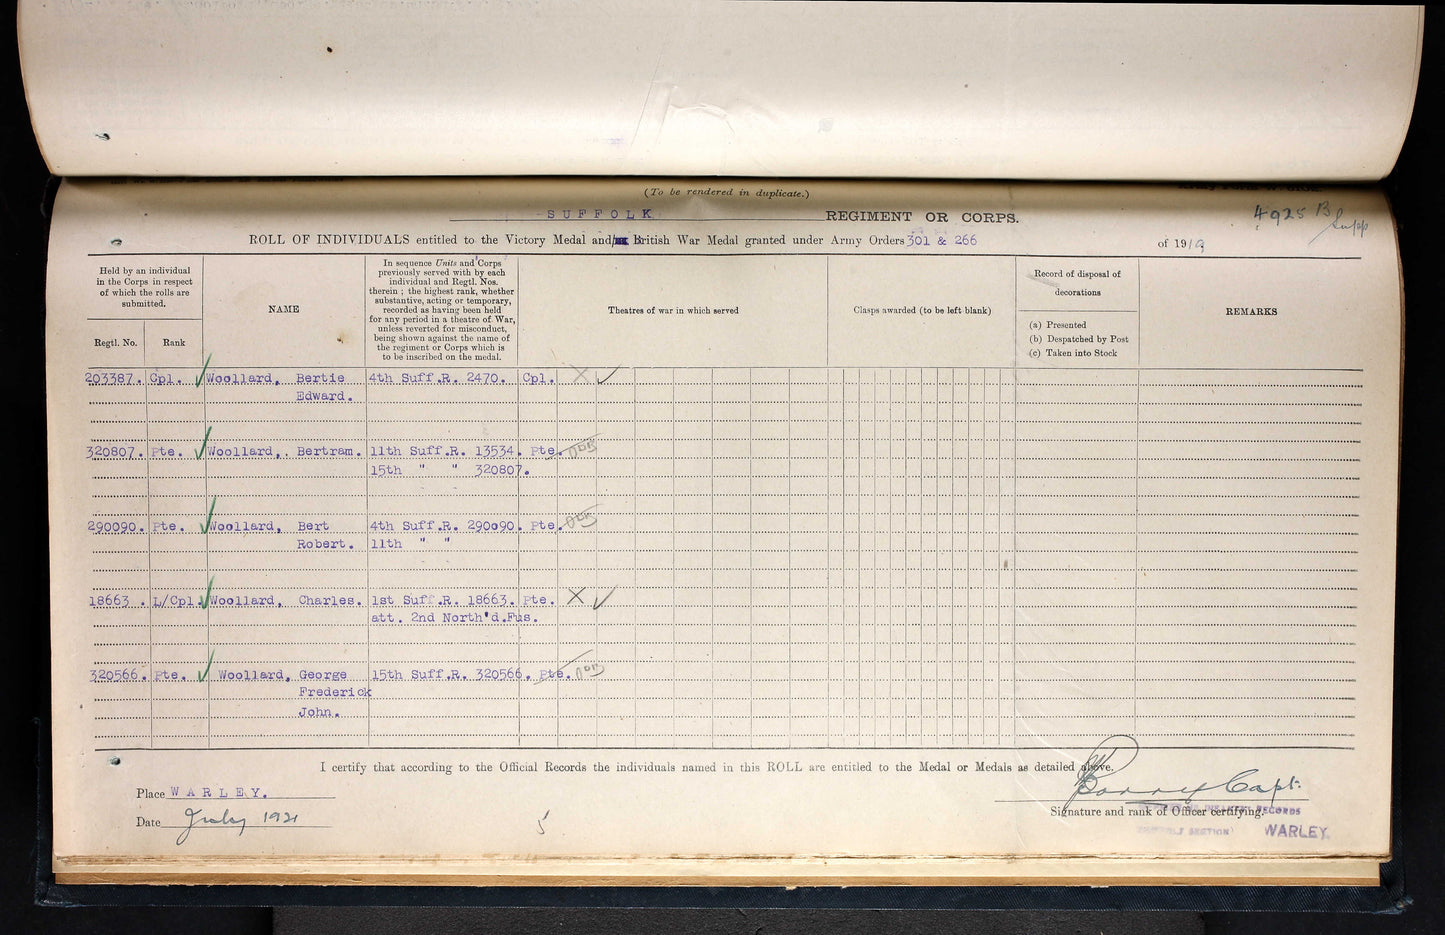 (To be rendered in duplicate.)
SUFFOLK REGIMENT OR CORPS.
4925 B
Supp
ROLL OF INDIVIDUALS entitled to the Victory Medal and/ British War Medal granted under Army Orders 301 & 266 of 1919
Held by an individual
in the Corps in respect
of which the rolls are
submitted.
Regtl. No. Rank
NAME
In sequence Units and Corps
previously served with by each
individual and Regtl. Nos.
therein ; the highest rank, whether
substantive, acting or temporary,
recorded as having been held
for any period in a theatre of War,
unless reverted for misconduct,
being shown against the name of
the regiment or Corps which is
to be inscribed on the medal.
Theatres of war in which served
Clasps awarded (to be left blank)
Record of disposal of
decorations
(a) Presented
(b) Despatched by Post
(c) Taken into Stock
REMARKS
203387. Cpl. Woollard, Bertie 4th Suff.R. 2470. Cpl. X ✓
Edward.
320807. Pte. Woollard,. Bertram. 11th Suff.R. 13534. Pte.
15th " " 320807.
290090. Pte. Woollard, Bert 4th Suff.R. 290090. Pte.
Robert. 11th " "
18663 . L/Cpl. Woollard, Charles. 1st Suff.R. 18663. Pte. X ✓
att. 2nd North'd.Fus.
320566. Pte. Woollard, George 15th Suff.R. 320566. Pte.
Frederick
John.
I certify that according to the Official Records the individuals named in this ROLL are entitled to the Medal or Medals as detailed above.
Place WARLEY.
Date July 1921
5
Capt.
Signature and rank of Officer certifying.
RECORDS
SECTION) WARLEY.